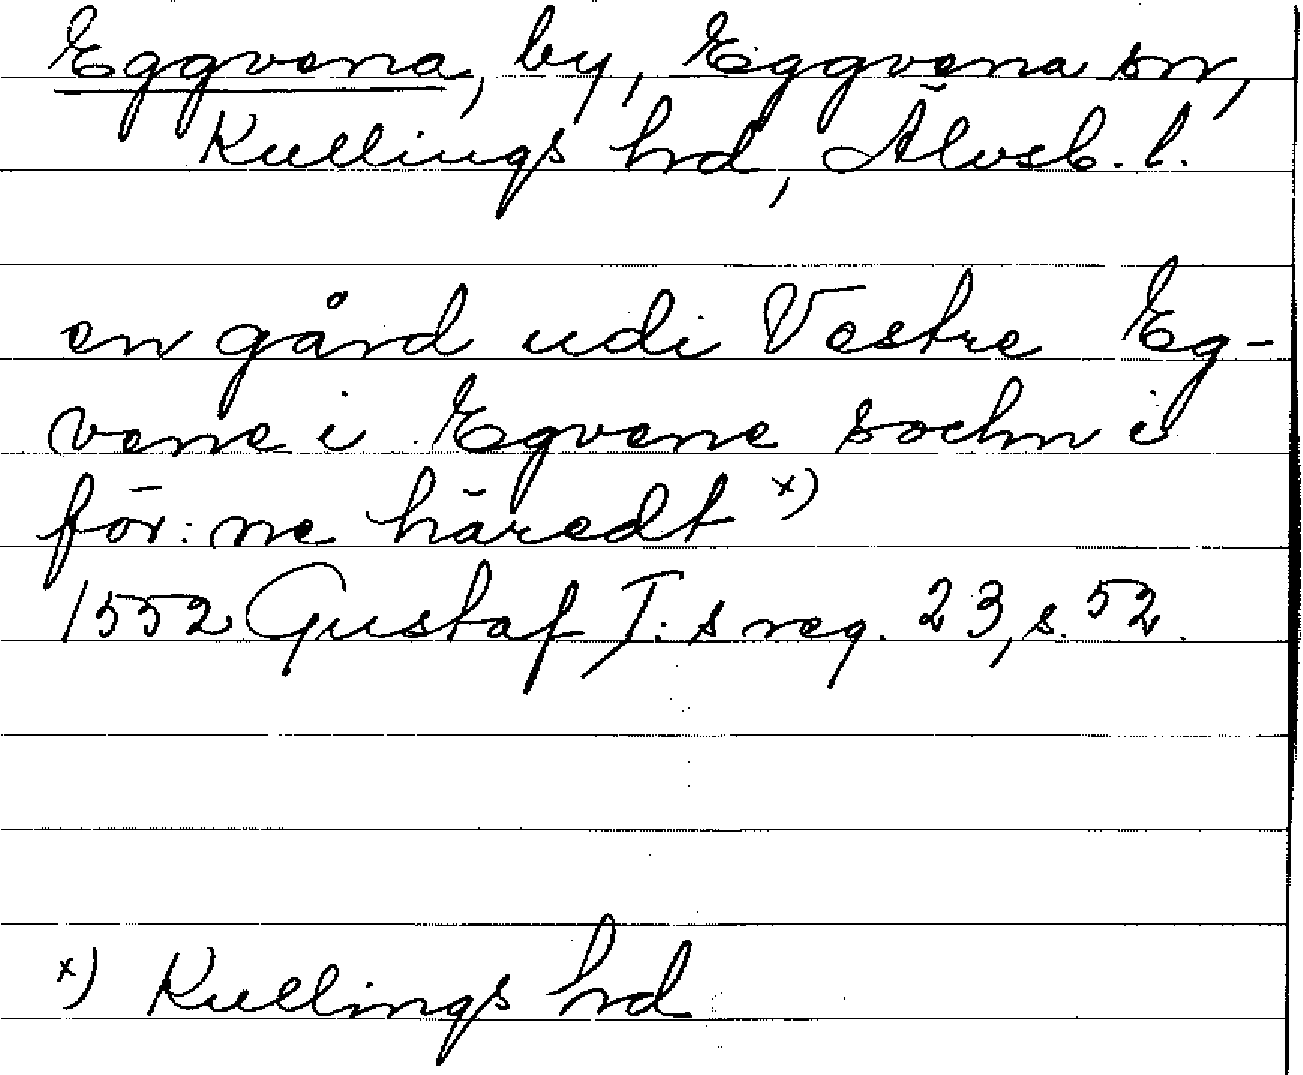 Eggvena, by, Eggvena sn,
Kullings hd, Älvsb. l.
en gård udi Vestre Eg-
vene i Egvene sochn i
för:ne häredt x)
1552 Gustaf I:s reg. 23, s. 52.
x) Kullings hd